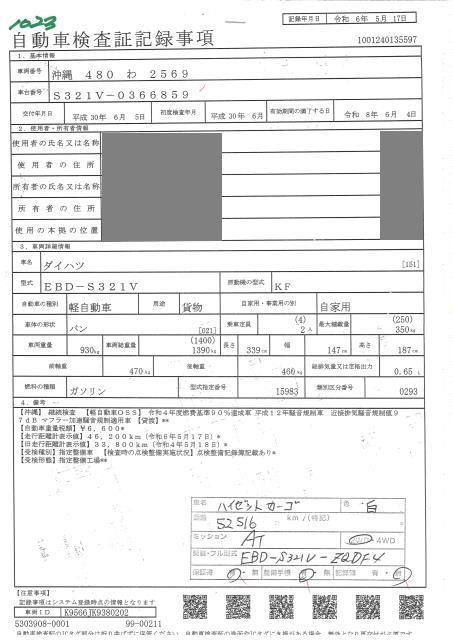 1023
記録年月日 令和 6年 5月 17日
自動車検査証記録事項
1001240135597
1. 基本情報
車両番号 沖縄 480 わ 2569
車台番号 S321V-0366859
交付年月日 平成 30年 6月 5日 初度検査年月 平成 30年 6月 有効期間の満了する日 令和 8年 6月 4日
2. 使用者・所有者情報
使用者の氏名又は名称
使用者の住所
所有者の氏名又は名称
所有者の住所
使用の本拠の位置
3. 車両詳細情報
車名 ダイハツ [151]
型式 EBD-S321V 原動機の型式 KF
自動車の種別 軽自動車 用途 貨物 自家用・事業用の別 自家用
車体の形状 バン [021] 乗車定員 (4) 2人 最大積載量 (250) 350kg
車両重量 930kg 車両総重量 (1400) 1390kg 長さ 339cm 幅 147cm 高さ 187cm
前軸重 470kg 後軸重 460kg 総排気量又は定格出力 0.65 L
燃料の種類 ガソリン 型式指定番号 15983 類別区分番号 0293
4. 備考
【沖縄】 継続検査 【軽自動車OSS】 令和4年度燃費基準90%達成車 平成12年騒音規制車 近接排気騒音規制値9
7dB マフラー加速騒音規制適用車 【貸渡】**
【自動車重量税額】¥6,600*
【走行距離計表示値】46,200km（令和6年5月17日）*
【旧走行距離計表示値】33,800km（令和4年5月18日）*
【受検種別】指定整備車 【検査時の点検整備実施状況】点検整備記録簿記載あり*
【受検形態】指定整備工場**
車名 ハイゼットカーゴ 色 白
距離 52516 km/(特記)
ミッション AT 2WD 4WD
認証・フル型式 EBD-S321V-ZQDF4
保証書 有・無 整備手帳 有・無 記録簿 有・無
【注意事項】
記録事項はシステム登録時点の情報となります
車両ID K9566JK9380202
5303908-0001 99-00211